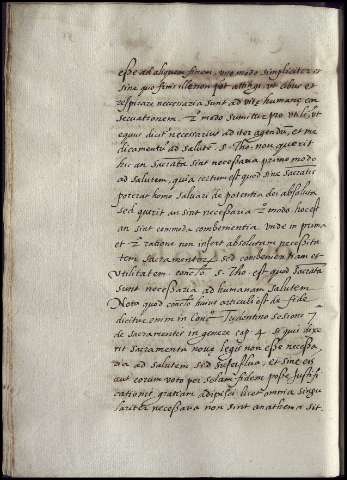 esse ad aliquem finem, uno modo simpliciter et
sine quo finis ille non pot attingi, ut cibus et
respirare necessaria sunt ad vitę humanę con
seruationem. 2º modo sumitur pro utili, ut
equus dicitr necessarius ad iter agendũ, et me
dicamentũ ad salutẽ. S. Tho. non querit
hic an Sacrãta sint necessaria primo modo
ad salutem, quia certum est quod sine Sacrãtis
poterat homo saluari de potentia dei absoluta
sed querit an sint necessaria 2º modo hoc est
an sint commoda conuenientia unde in prima
et 2ª ratione non infert absolutam necessita
tem sacramentorũ sed conuenientiam et
utilitatem. conclo. S. Tho. est quod Sacrãta
sunt necessaria ad humanam salutem
Nota quod conclo huius articuli est de fide
dicitur enim in Conco Tridentino sessione 7
de sacramentis in genere cap. 4. si quis dixe
rit Sacramenta nouę legis non esse necessa
ria ad salutem sed superflua, et sine eis
aut eorum voto per solam fidem posse Justifi
cationis gratiam adipisci licet omnia singu
lariter necessaria non sint anathema sit.